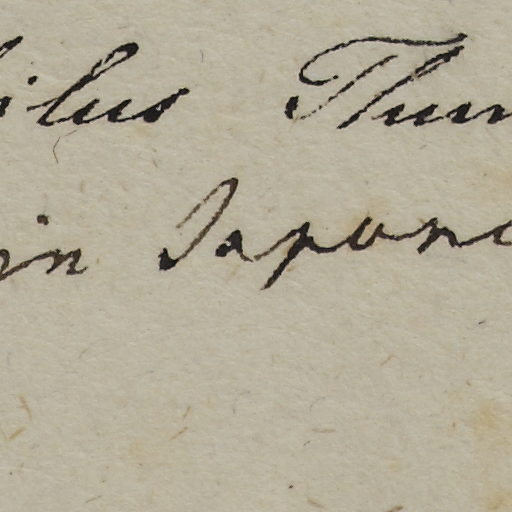 ilus Thun
in Japoni